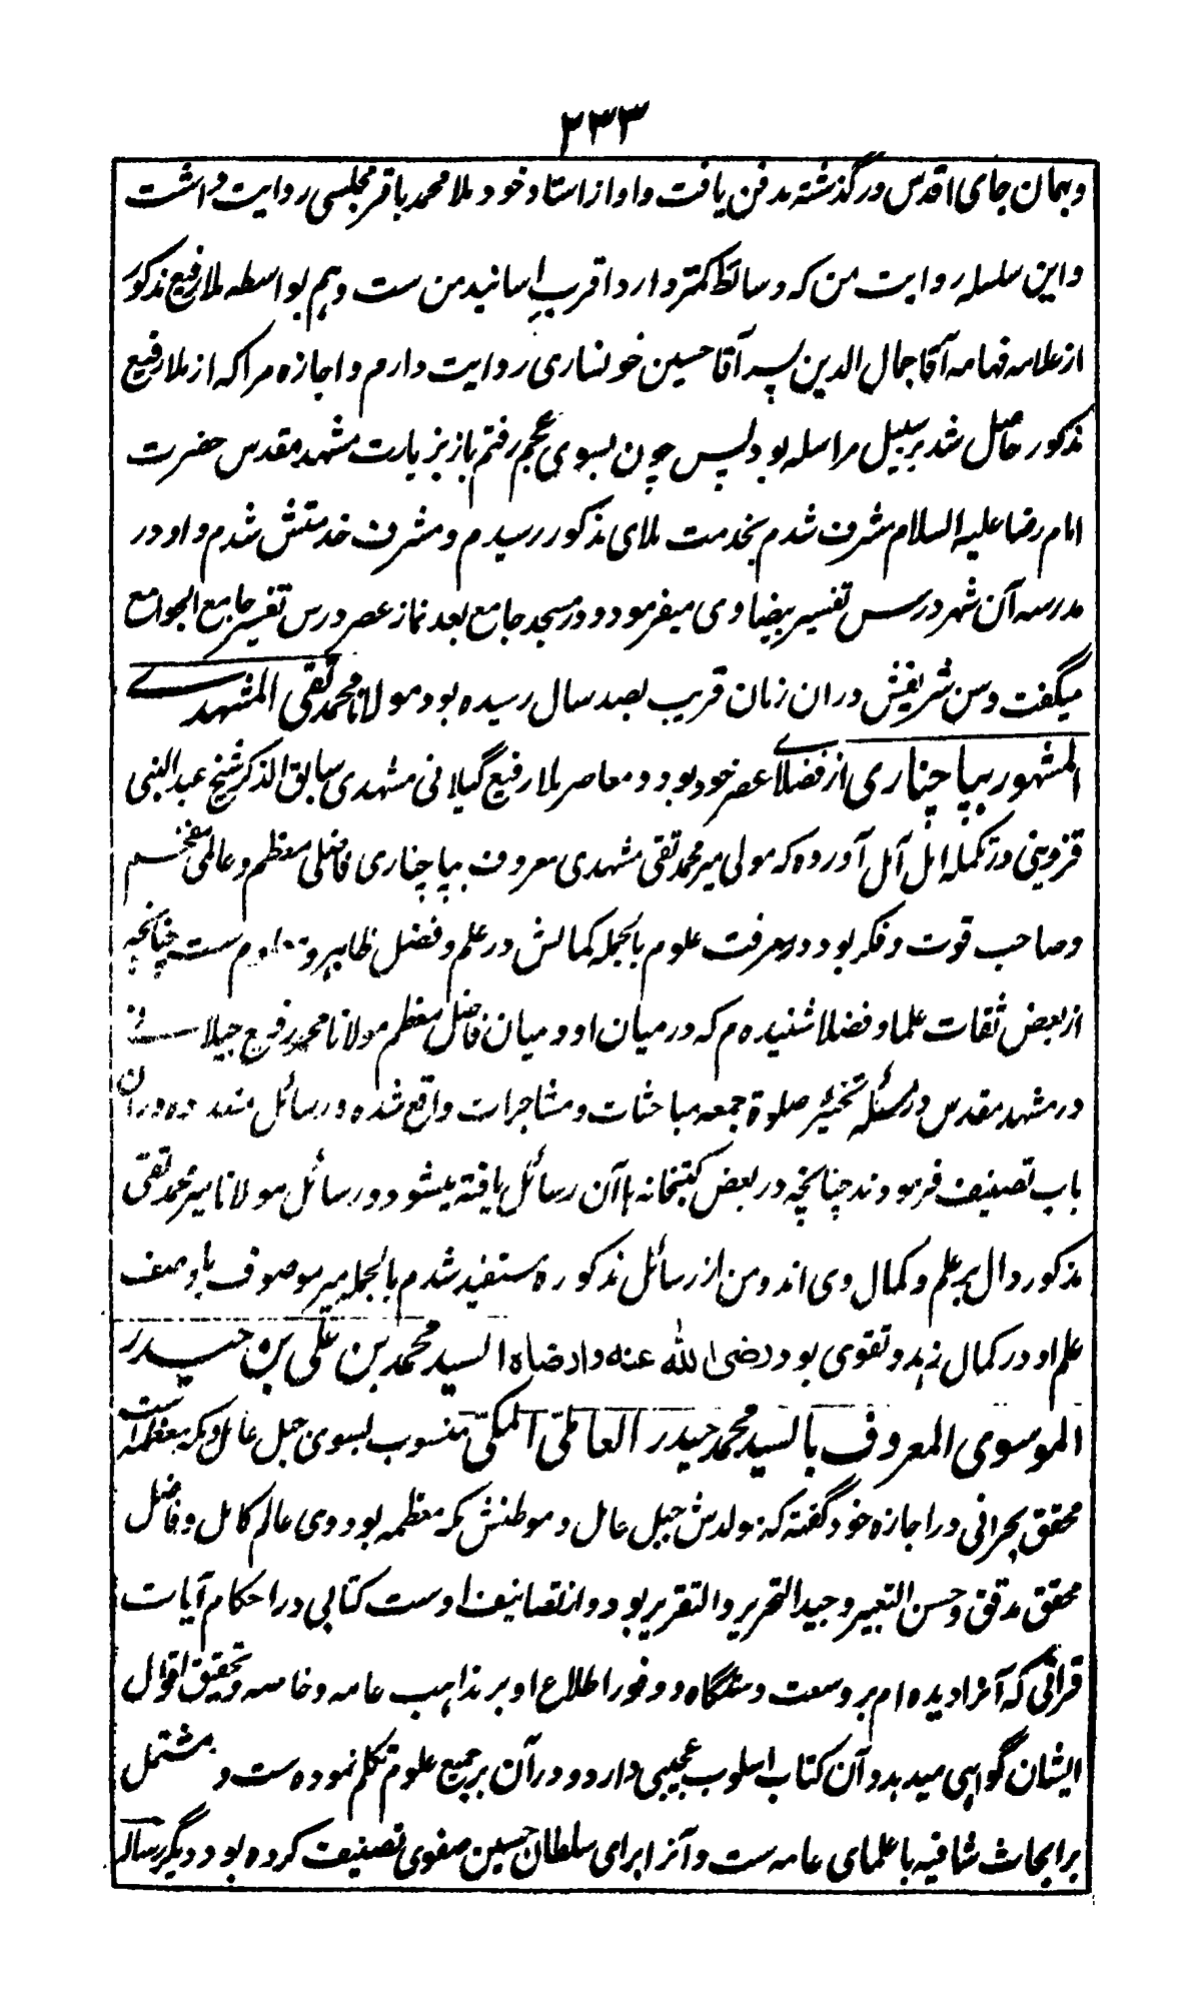 ۲۳۳
وبہمان جای اقدس درگذشتہ مدفن یافت واو از استاد خود ملا محمد باقر مجلسی روایت داشت
واین سلسلہ روایت من کہ وسائط کمتر دارد اقرب اسانید من ست وہم بواسطہ ملا رفیع مذکور
از علامہ فہامہ آقا جمال الدین پسر آقا حسین خونساری روایت دارم واجازہ مرا کہ از ملا رفیع
مذکور حاصل شد بر سبیل مراسلہ بود پس چون بسوی عجم رفتم باز بزیارت مشہد مقدس حضرت
امام رضا علیہ السلام مشرف شدم بخدمت ملای مذکور رسیدم ومشرف خدمتش شدم واو در
مدرسہ آن شہر درس تفسیر بیضاوی میفرمود ودر مسجد جامع بعد نماز عصر درس تفسیر جامع الجوامع
میگفت وسن شریفش دران زمان قریب بصد سال رسیدہ بود مولانا محمد تقی المشہدے
المشہور بپاچناری از فضلاے عصر خود بود ومعاصر ملا رفیع گیلانی مشہدی سابق الذکر شیخ عبد النبی
قزوینی در تکملہ امل آمل آوردہ کہ مولی میر محمد تقی مشہدی معروف بپاچناری فاضلی معظم وعالمی مفخم
وصاحب قوت وفکر بود در معرفت علوم بالجملہ کمالش در علم وفضل ظاہر ومعلوم ست چنانچہ
از بعض ثقات علما وفضلا شنیدہ م کہ در میان او ومیان فاضل معظم مولانا محمد رفیع جیلانے
در مشہد مقدس در مسئلہ تخییر صلوة جمعہ مباحثات ومشاجرات واقع شدہ ورسائل متعددہ دران
باب تصنیف فرمودند چنانچہ در بعض کتبخانہ ہا آن رسائل یافتہ میشود ورسائل مولانا میر محمد تقی
مذکور دال بر علم وکمال وی اند ومن از رسائل مذکورہ مستفید شدم بالجملہ میر موصوف باوصف
علم او در کمال زہد وتقوی بود رضی اللہ عنہ وارضاہ السید محمد بن علی بن حیدر
الموسوی المعروف بالسید محمد حیدر العاملی المکی منسوب بسوی جبل عامل ومکہ معظمہ است
محقق بحرانی در اجازہ خود گفتہ کہ مولدش جبل عامل وموطنش مکہ معظمہ بود وی عالم کامل وفاضل
محقق مدقق وحسن التعبیر وجید التحریر والتقریر بود واز تصانیف اوست کتابی در احکام آیات
قرآنی کہ آنرا دیدہ ام بر وسعت دستگاہ ووفور اطلاع او بر مذاہب عامہ وخاصہ وتحقیق اقوال
ایشان گواہی میدہد وآن کتاب اسلوب عجیبی دارد ودر آن بر جمیع علوم تکلم نمودہ ست ومشتمل
بر ابحاث شافیہ با علمای عامہ ست وآنرا برای سلطان حسین صفوی تصنیف کردہ بود دیگر رسالہ